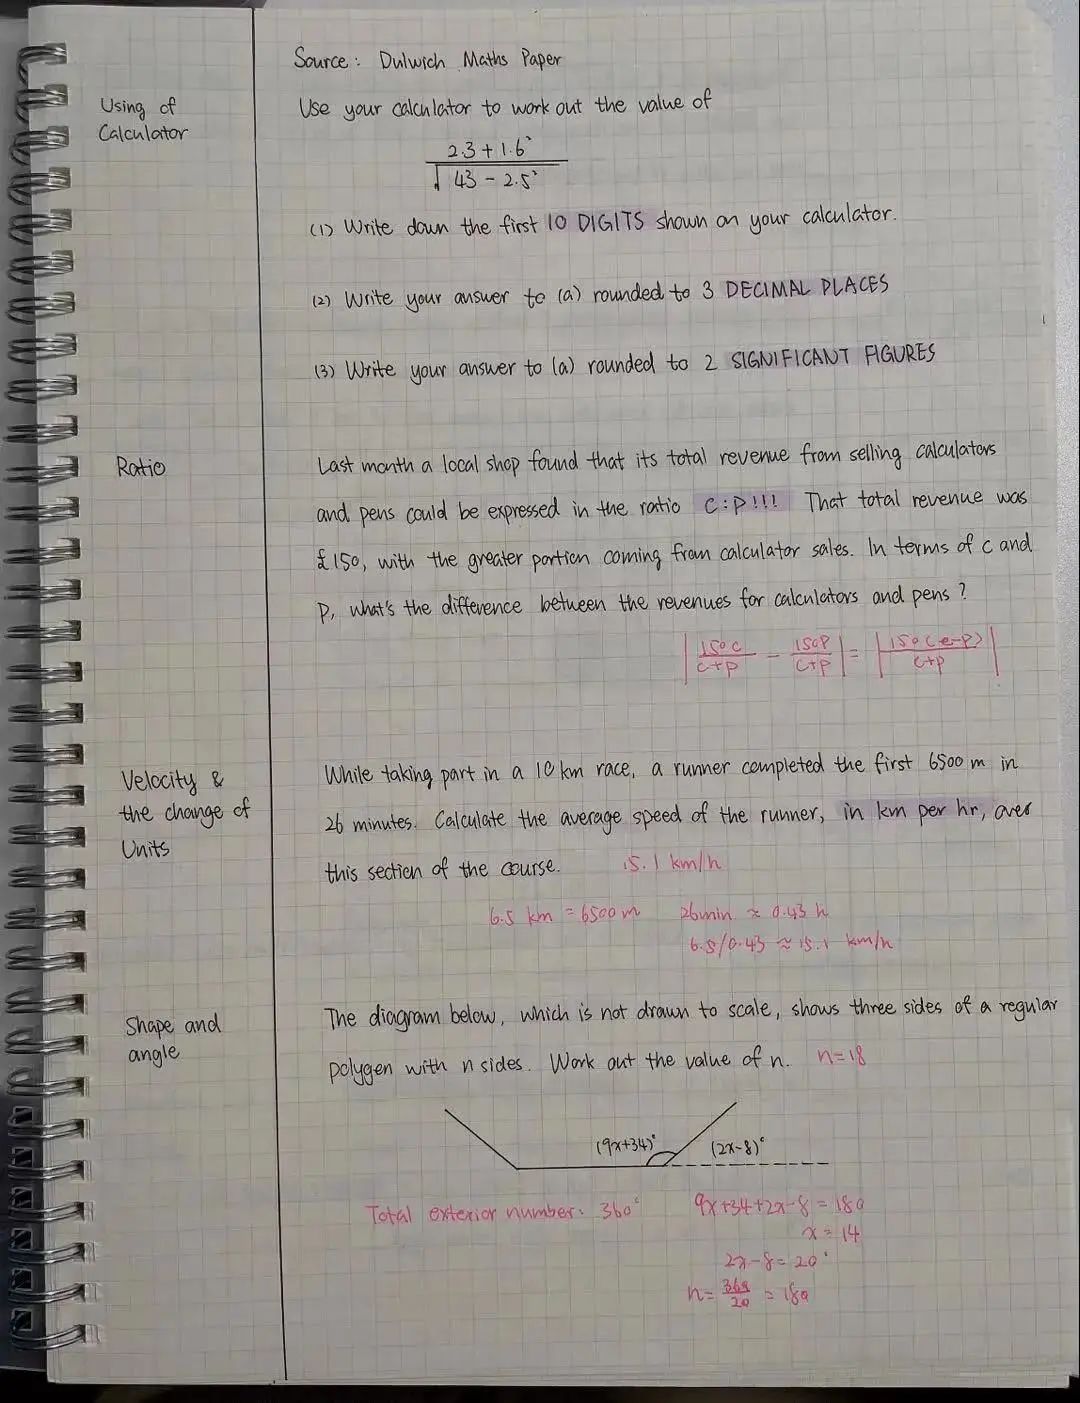 Source: Dulwich Maths Paper
Using of
Calculator
Use your calculator to work out the value of
2.3 + 1.6²
√43 - 2.5²
(1) Write down the first 10 DIGITS shown on your calculator.
(2) Write your answer to (a) rounded to 3 DECIMAL PLACES
(3) Write your answer to (a) rounded to 2 SIGNIFICANT FIGURES
Ratio
Last month a local shop found that its total revenue from selling calculators
and pens could be expressed in the ratio C:P!!! That total revenue was
£150, with the greater portion coming from calculator sales. In terms of c and
P, what's the difference between the revenues for calculators and pens?
|150C/C+P - 150P/C+P| = |150(c-p)/C+P|
Velocity &
the change of
Units
While taking part in a 10km race, a runner completed the first 6500 m in
26 minutes. Calculate the average speed of the runner, in km per hr, over
this section of the course. 15.1 km/h
6.5 km = 6500m 26min ≈ 0.43 h
6.5/0.43 ≈ 15.1 km/h
Shape and
angle
The diagram below, which is not drawn to scale, shows three sides of a regular
polygen with n sides. Work out the value of n. n=18
(9x+34)° (2x-8)°
Total exterior number: 360° 9x+34+2x-8=180
x=14
2x-8=20°
n=360/20=180